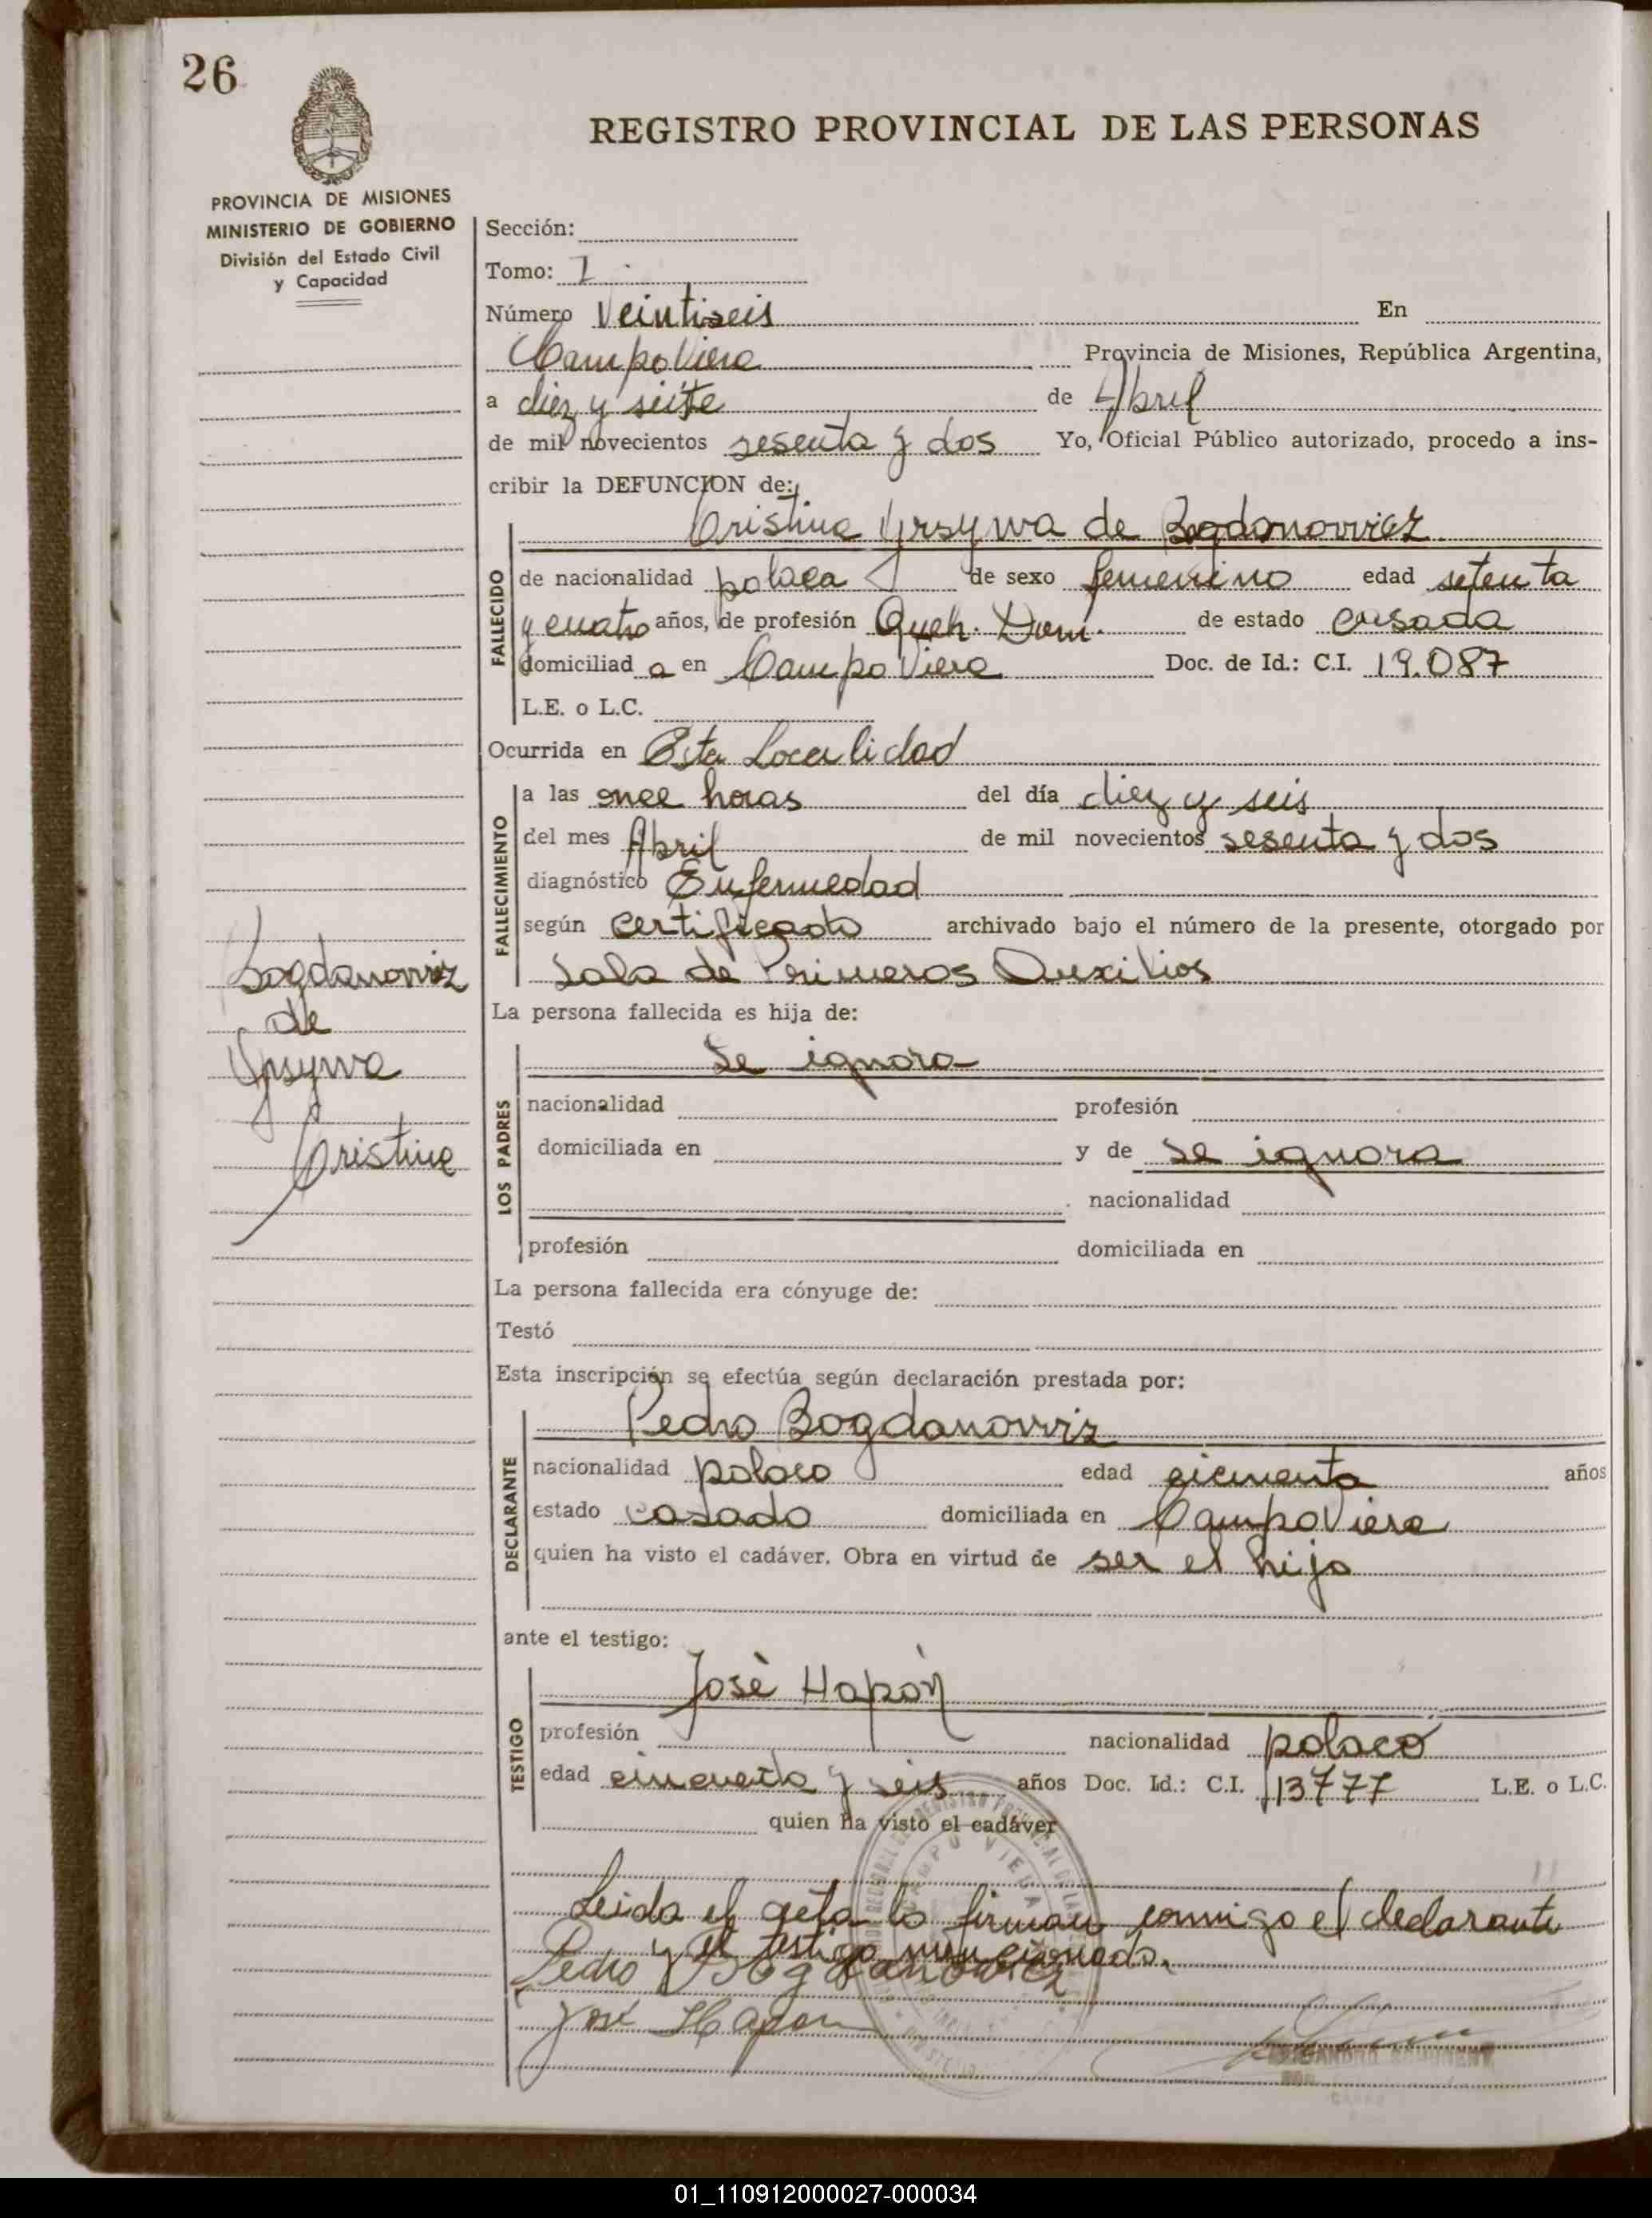 26
REGISTRO PROVINCIAL DE LAS PERSONAS
PROVINCIA DE MISIONES
MINISTERIO DE GOBIERNO
División del Estado Civil
y Capacidad
Sección:
Tomo: I
Número Veintiseis En
Campo Viera Provincia de Misiones, República Argentina,
a diez y seite de Abril
de mil novecientos sesenta y dos Yo, Oficial Público autorizado, procedo a ins-
cribir la DEFUNCION de:
Cristina Yrsywa de Bogdanovvicz
FALLECIDO
de nacionalidad polaca de sexo femenino edad setenta
y cuatro años, de profesión Queh. Dom. de estado casada
domiciliad a en Campo Viera Doc. de Id.: C.I. 19.087
L.E. o L.C.
Ocurrida en Esta Localidad
FALLECIMIENTO
a las once horas del día diez y seis
del mes Abril de mil novecientos sesenta y dos
diagnóstico Enfermedad
según certificado archivado bajo el número de la presente, otorgado por
Sala de Primeros Auxilios
Bogdanovviz
de
Yrsywa
Cristina
La persona fallecida es hija de:
LOS PADRES
Se ignora
nacionalidad profesión
domiciliada en y de se ignora
nacionalidad
profesión domiciliada en
La persona fallecida era cónyuge de:
Testó
Esta inscripción se efectúa según declaración prestada por:
DECLARANTE
Pedro Bogdanovviz
nacionalidad polaco edad cicuenta años
estado casado domiciliada en Campo Viera
quien ha visto el cadáver. Obra en virtud de ser el hijo
ante el testigo:
TESTIGO
José Hapón
profesión nacionalidad polaco
edad cincuenta y seis años Doc. Id.: C.I. 113777 L.E. o L.C.
quien ha visto el cadáver
Leida el acta la firman conmigo el declarante
y el testigo mencionado.
Pedro Bogdanowicz
José Hapon
CAMPO VIERA
01_110912000027-000034